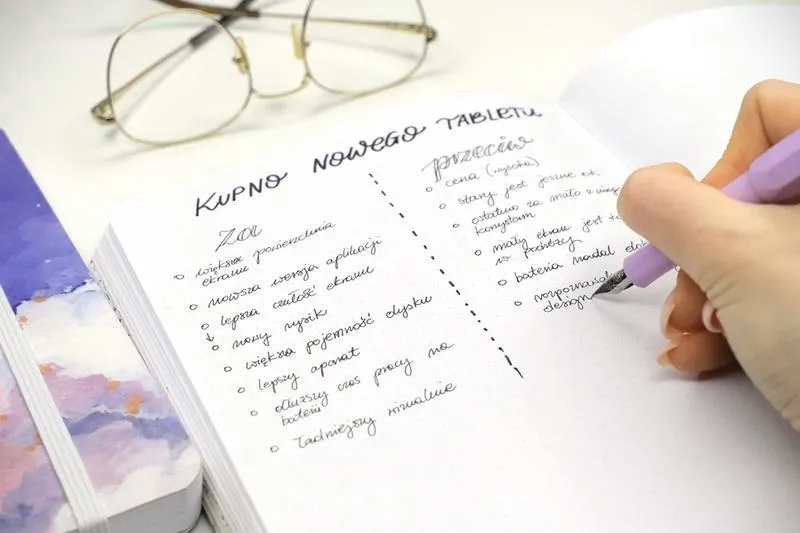 KUPNO NOWEGO TABLETU
za
większa powierzchnia
ekranu
nowsza wersja aplikacji
lepsza czułość ekranu
↳ nowy rysik
większa pojemność dysku
lepszy aparat
dłuższy czas pracy na
baterii
ładniejszy wizualnie
przeciw
cena (wysoka)
stary jest jeszcze ok
ostatnio za mało z niego
korzystam
mały ekran jest
w podróży
bateria nadal
design